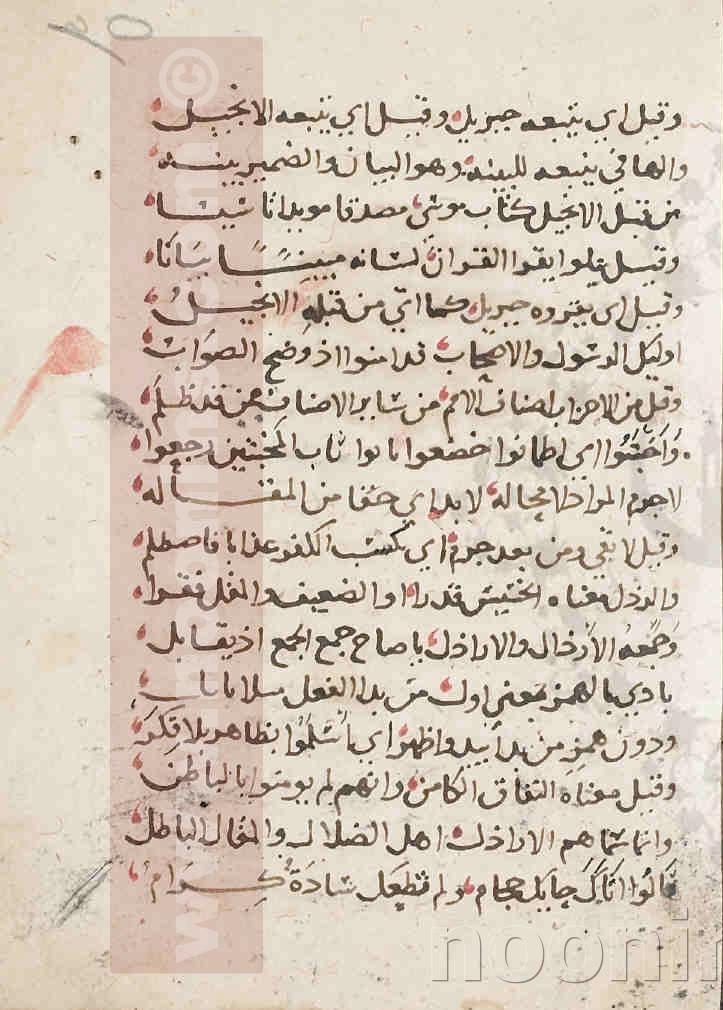 وقيل اي يتبعه جبريل وقيل اي يتبعه الانجيل
والها في يتبعه للبينه وهو البيان والضمير بينه
من قبل الانجيل كتاب موسى مصدقا مويدا تاسيسا
وقيل يتلوا يقرا القران لسانه مبينا بيانا
وقيل اي يقروه جبريل كما اتي من قبله الانجيل
اوليك الرسول والاصحاب قد امنوا اذ وضح الصواب
وقل من الاحزاب اصناف الامم من ساير الاصناف ممن قد ظلم
وَاَخْبَتُوا اي اطمانوا خضعوا انابوا تاب المخبتين رجعوا
لا جرم المراد لا محاله لا بد اي حقا من المقاله
وقيل لا بقي ومن بعد جرم اي كسب الكفر عذابا فاصطلم
والرذل معناه الخسيس قدرا والضعيف والمقل فقرا
وَجَمْعُهُ الأرذال والاراذل يا صاح جمع الجمع اذ يقابل
بادي بالهمز بمعنى اول من بدا الفعل
ودون همزٍ من بدا يبدو اظهر اي اَسْلَمُوا بظاهر بلا فِكَرْ
وقيل معناه النفاق الكامن وانهم لم يومنوا بالباطن
وانما سماهم الاراذل اهل الضلال والمقال الباطل
قالوا اتاك حايك حجام ولم تطعك سَادَةٌ كِرَامُ
noonin